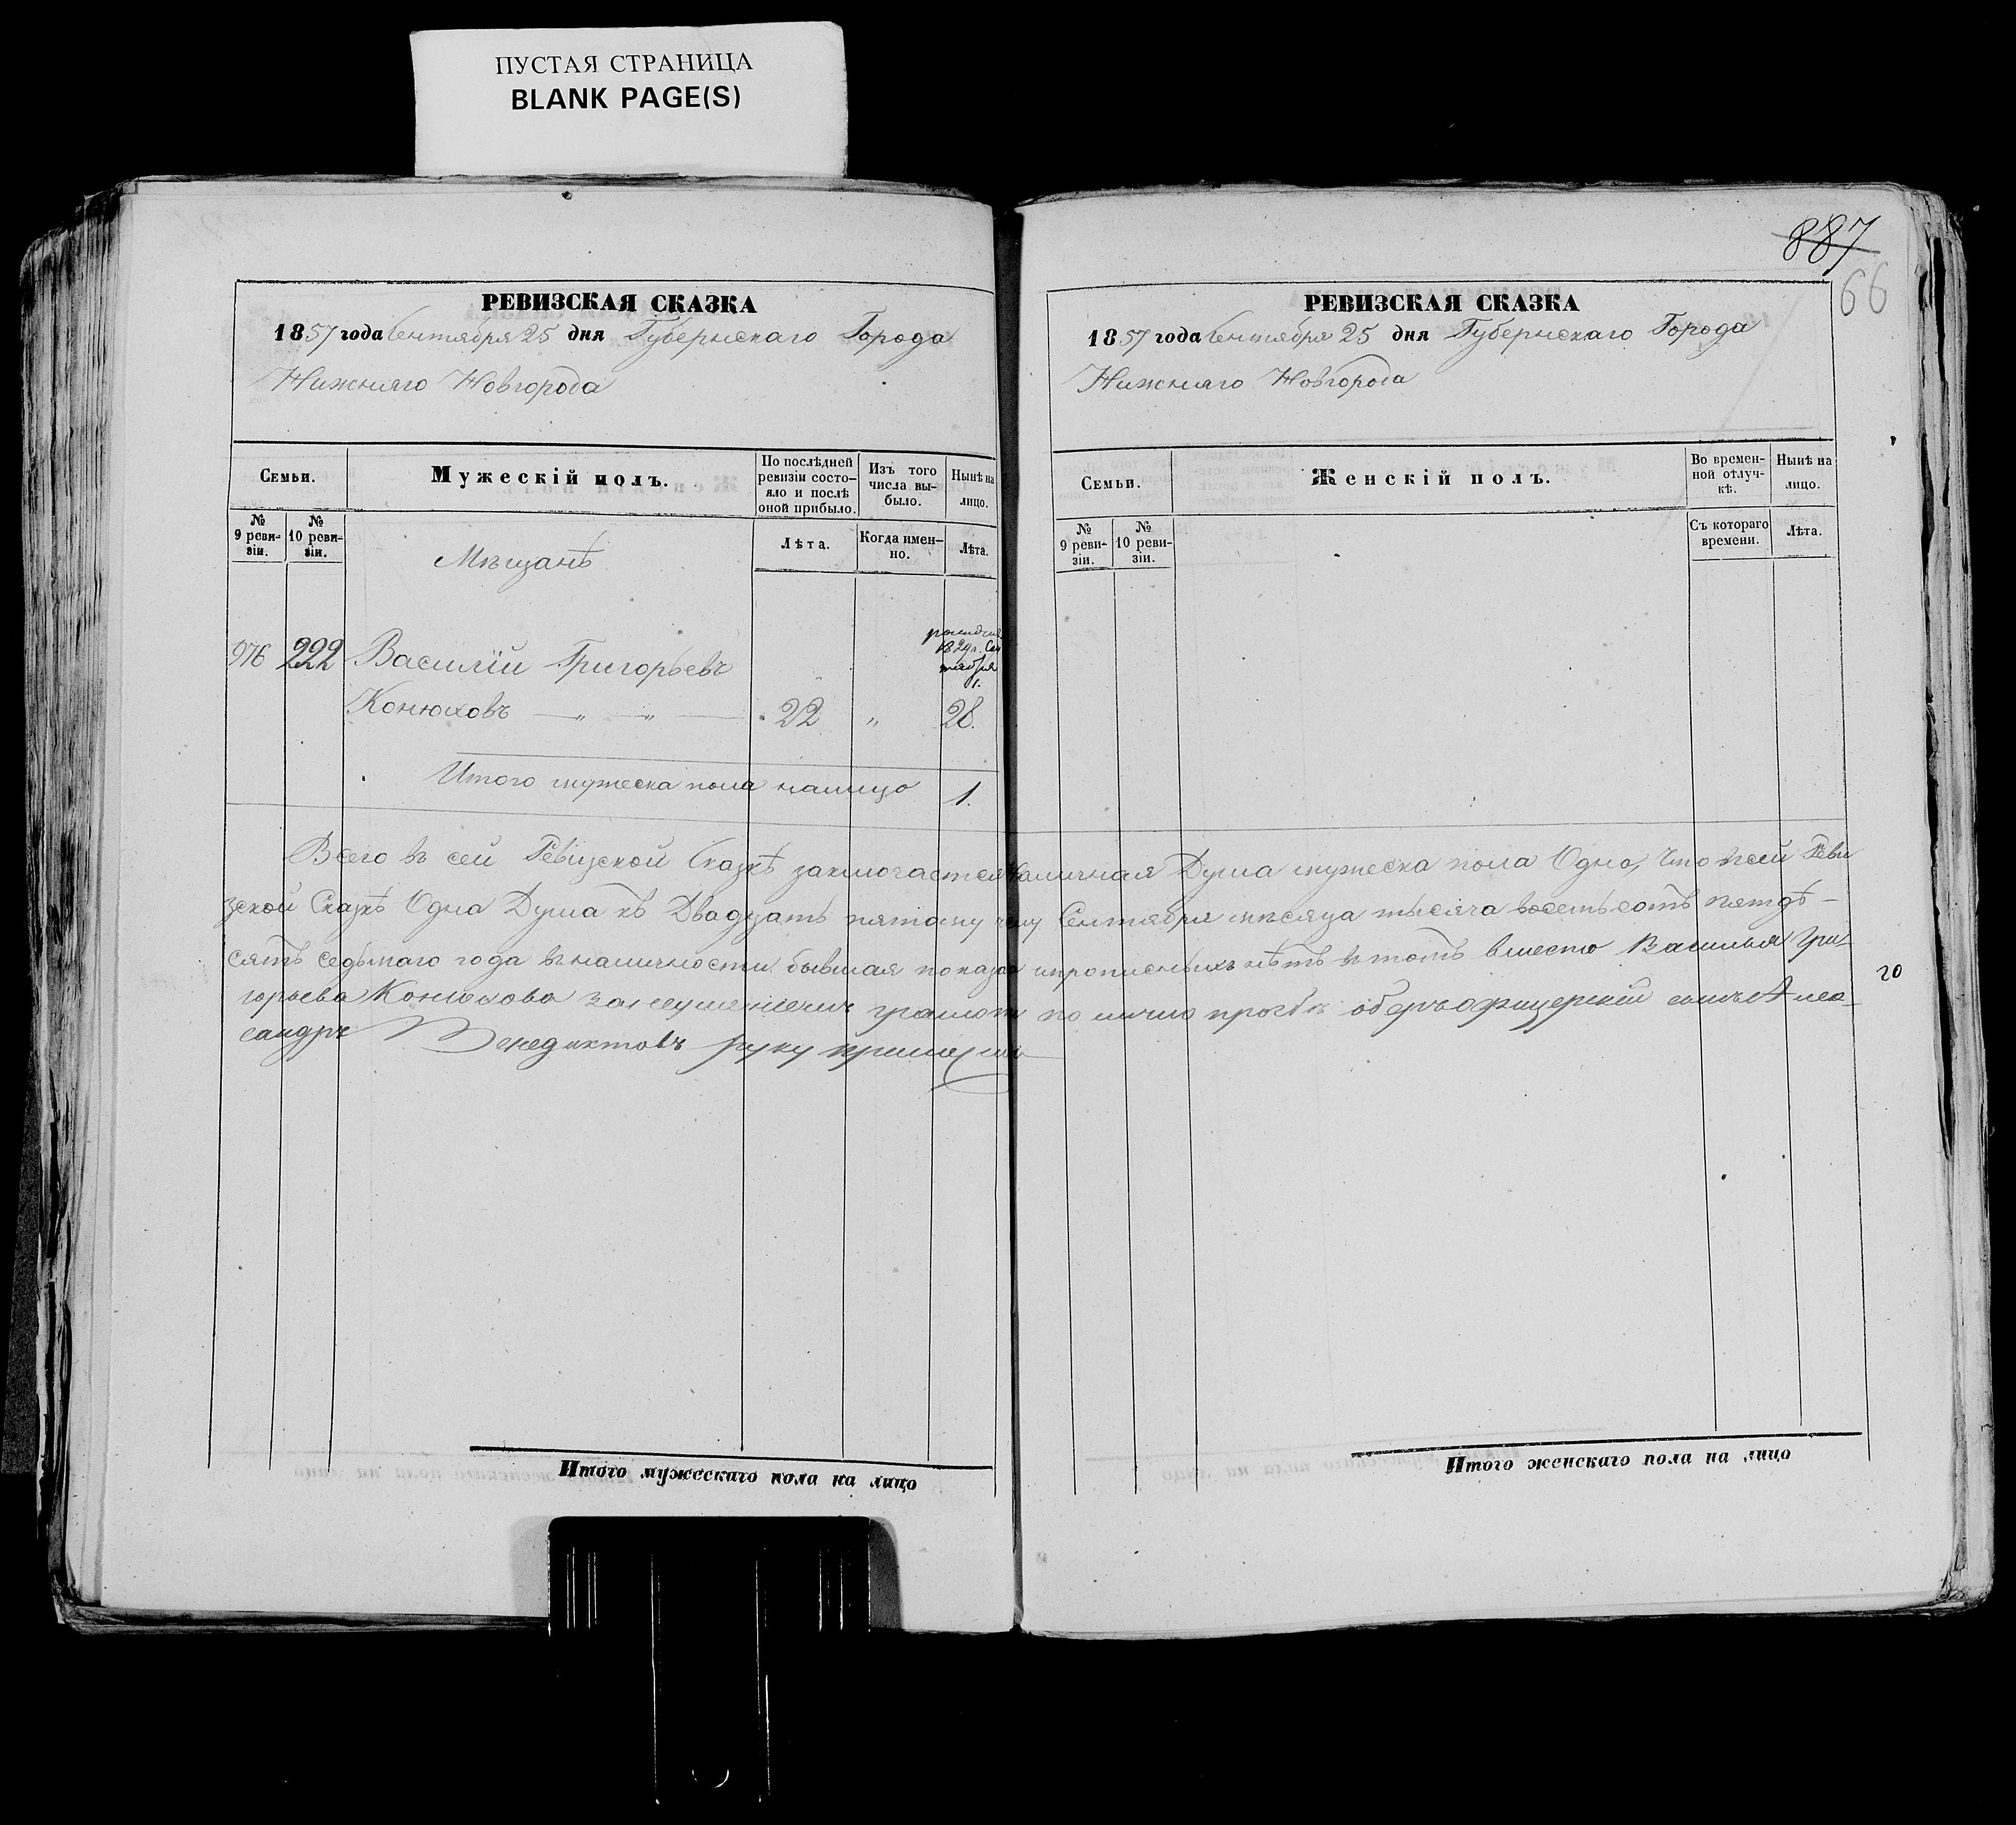 ПУСТАЯ СТРАНИЦА
BLANK PAGE(S)
РЕВИЗСКАЯ СКАЗКА
1857 года Сентября 25 дня Губернскаго Города
Нижняго Новгорода
Семьи.
Мужескій полъ.
По послѣдней ревизіи состо-
яло и послѣ
оной прибыло.
Изъ того
числа вы-
было.
Нынѣ на
лицо.
№
9 реви-
зіи.
№
10 реви-
зіи.
Лѣта.
Когда имен-
но.
Лѣта.
Мѣщанѣ
976 222 Василій Григорьевъ
1829 г. Сен
тября
1.
Конюховъ — „ — „ — 22 „ 28.
Итого мужеска пола налицо 1.
887
66
РЕВИЗСКАЯ СКАЗКА
1857 года Сентября 25 дня Губернскаго Города
Нижняго Новгорода
Семьи.
Женскій полъ.
Во времен-
ной отлуч-
кѣ.
Нынѣ на
лицо.
№
9 реви-
зіи.
№
10 реви-
зіи.
Съ котораго
времени.
Лѣта.
Всего въ сей Ревизской Сказкѣ заключается наличная Душа мужеска пола Одно, Что в сей Реви
зской Сказкѣ Одна Душа къ Двадцать пятому Сентября мѣсяца тысяча восемьсотъ пятдѣ-
сятъ седьмаго года въ наличности бывшая показана и прописныхъ нѣтъ въ томъ вместо Василья Гри-
горьева Конюхова за неумѣніемъ грамоте по лично просьбѣ оберъофицерскій сынъ Алек-
сандръ Венедиктовъ руку приложилъ
20
Итого мужескаго пола на лицо
Итого женскаго пола на лицо